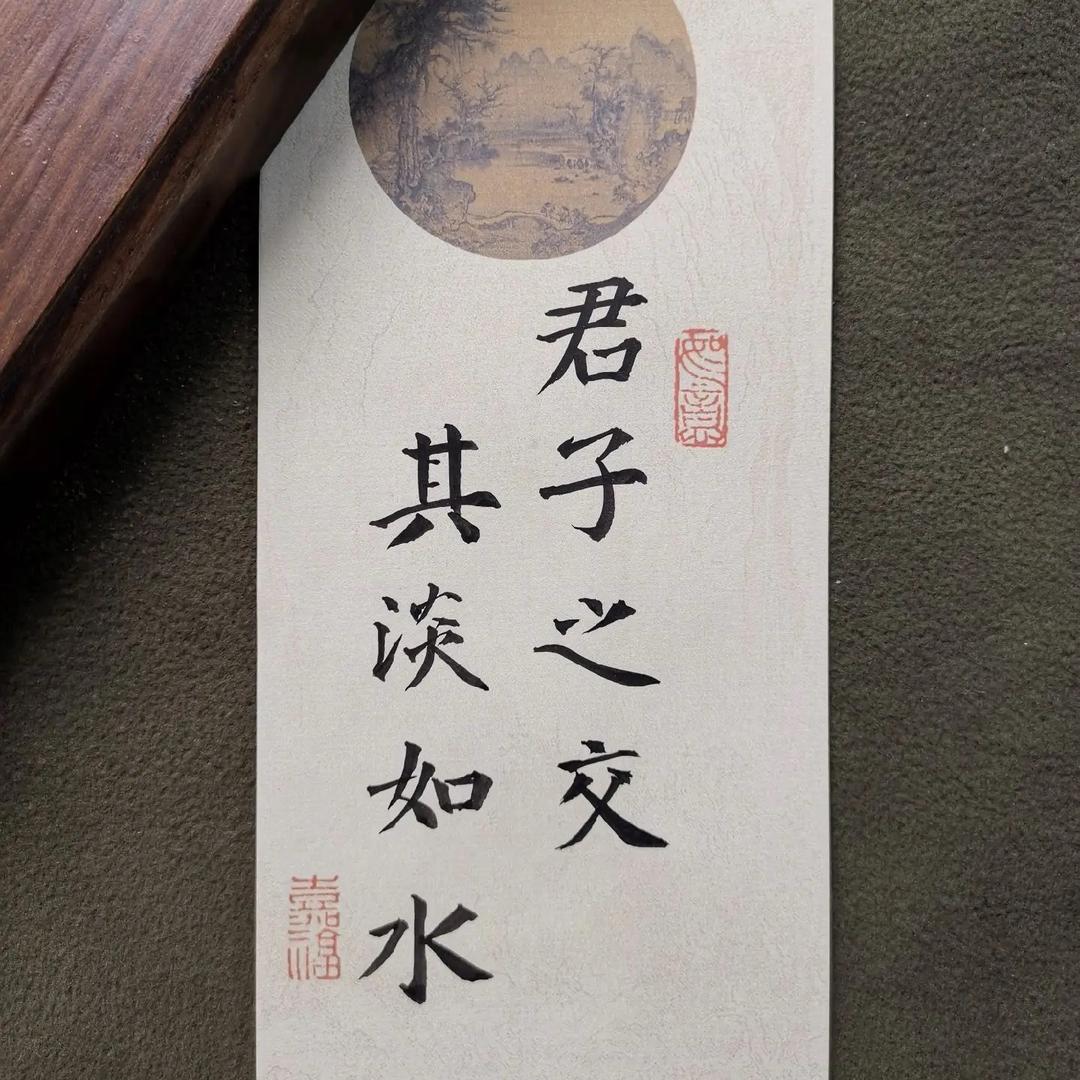 君子之交
其淡如水
嘉福